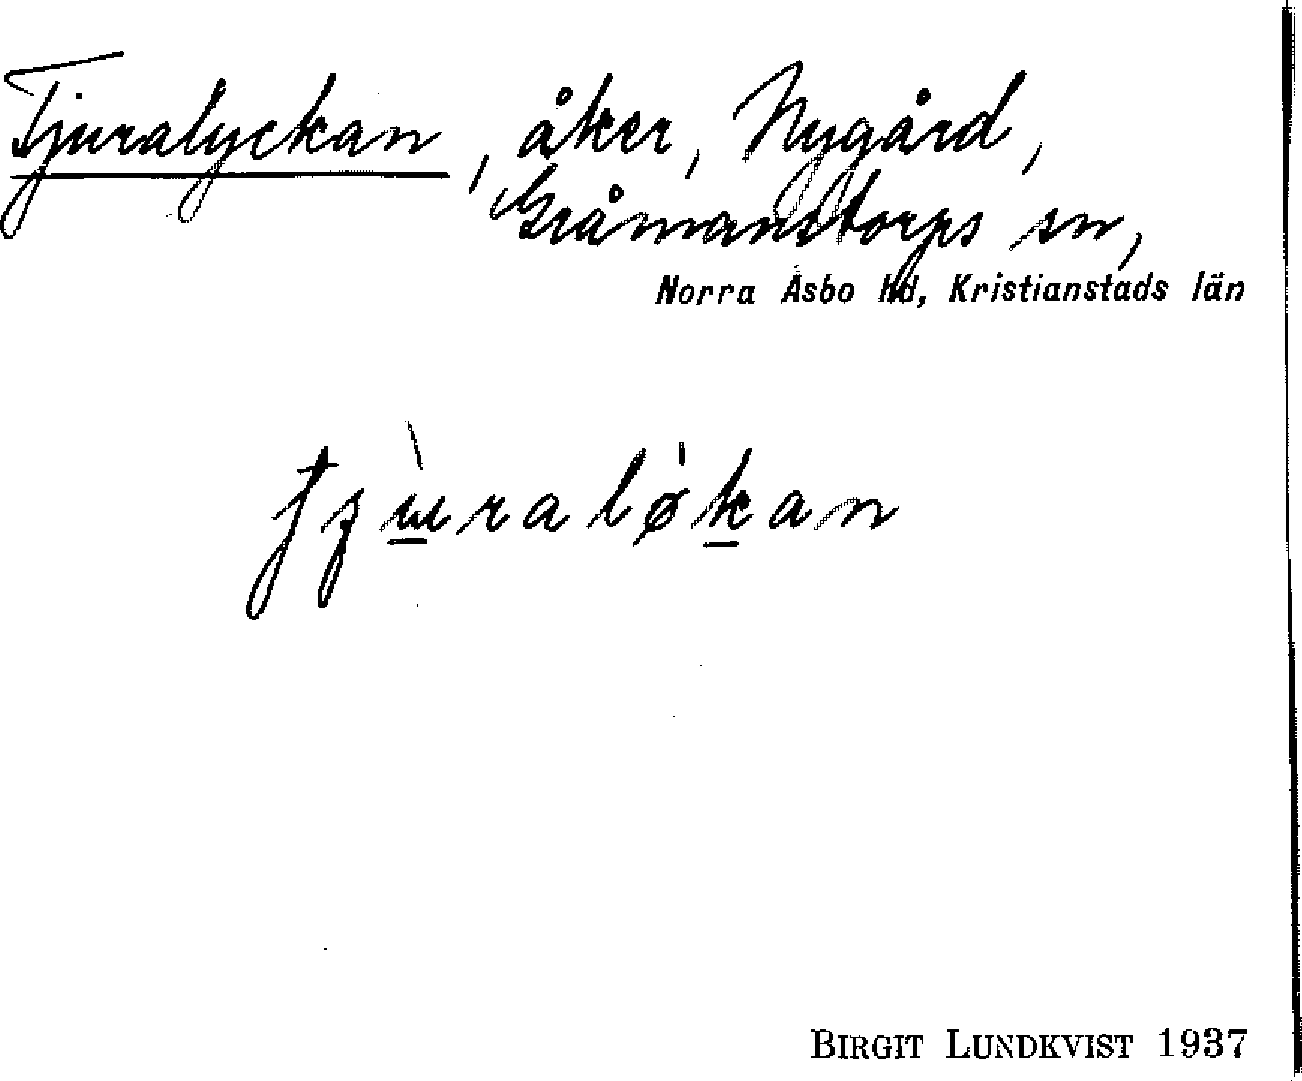 Tjuralyckan, åker, Nygård,
Gråmanstorps sn,
Norra Åsbo hd, Kristianstads län
BIRGIT LUNDKVIST 1937